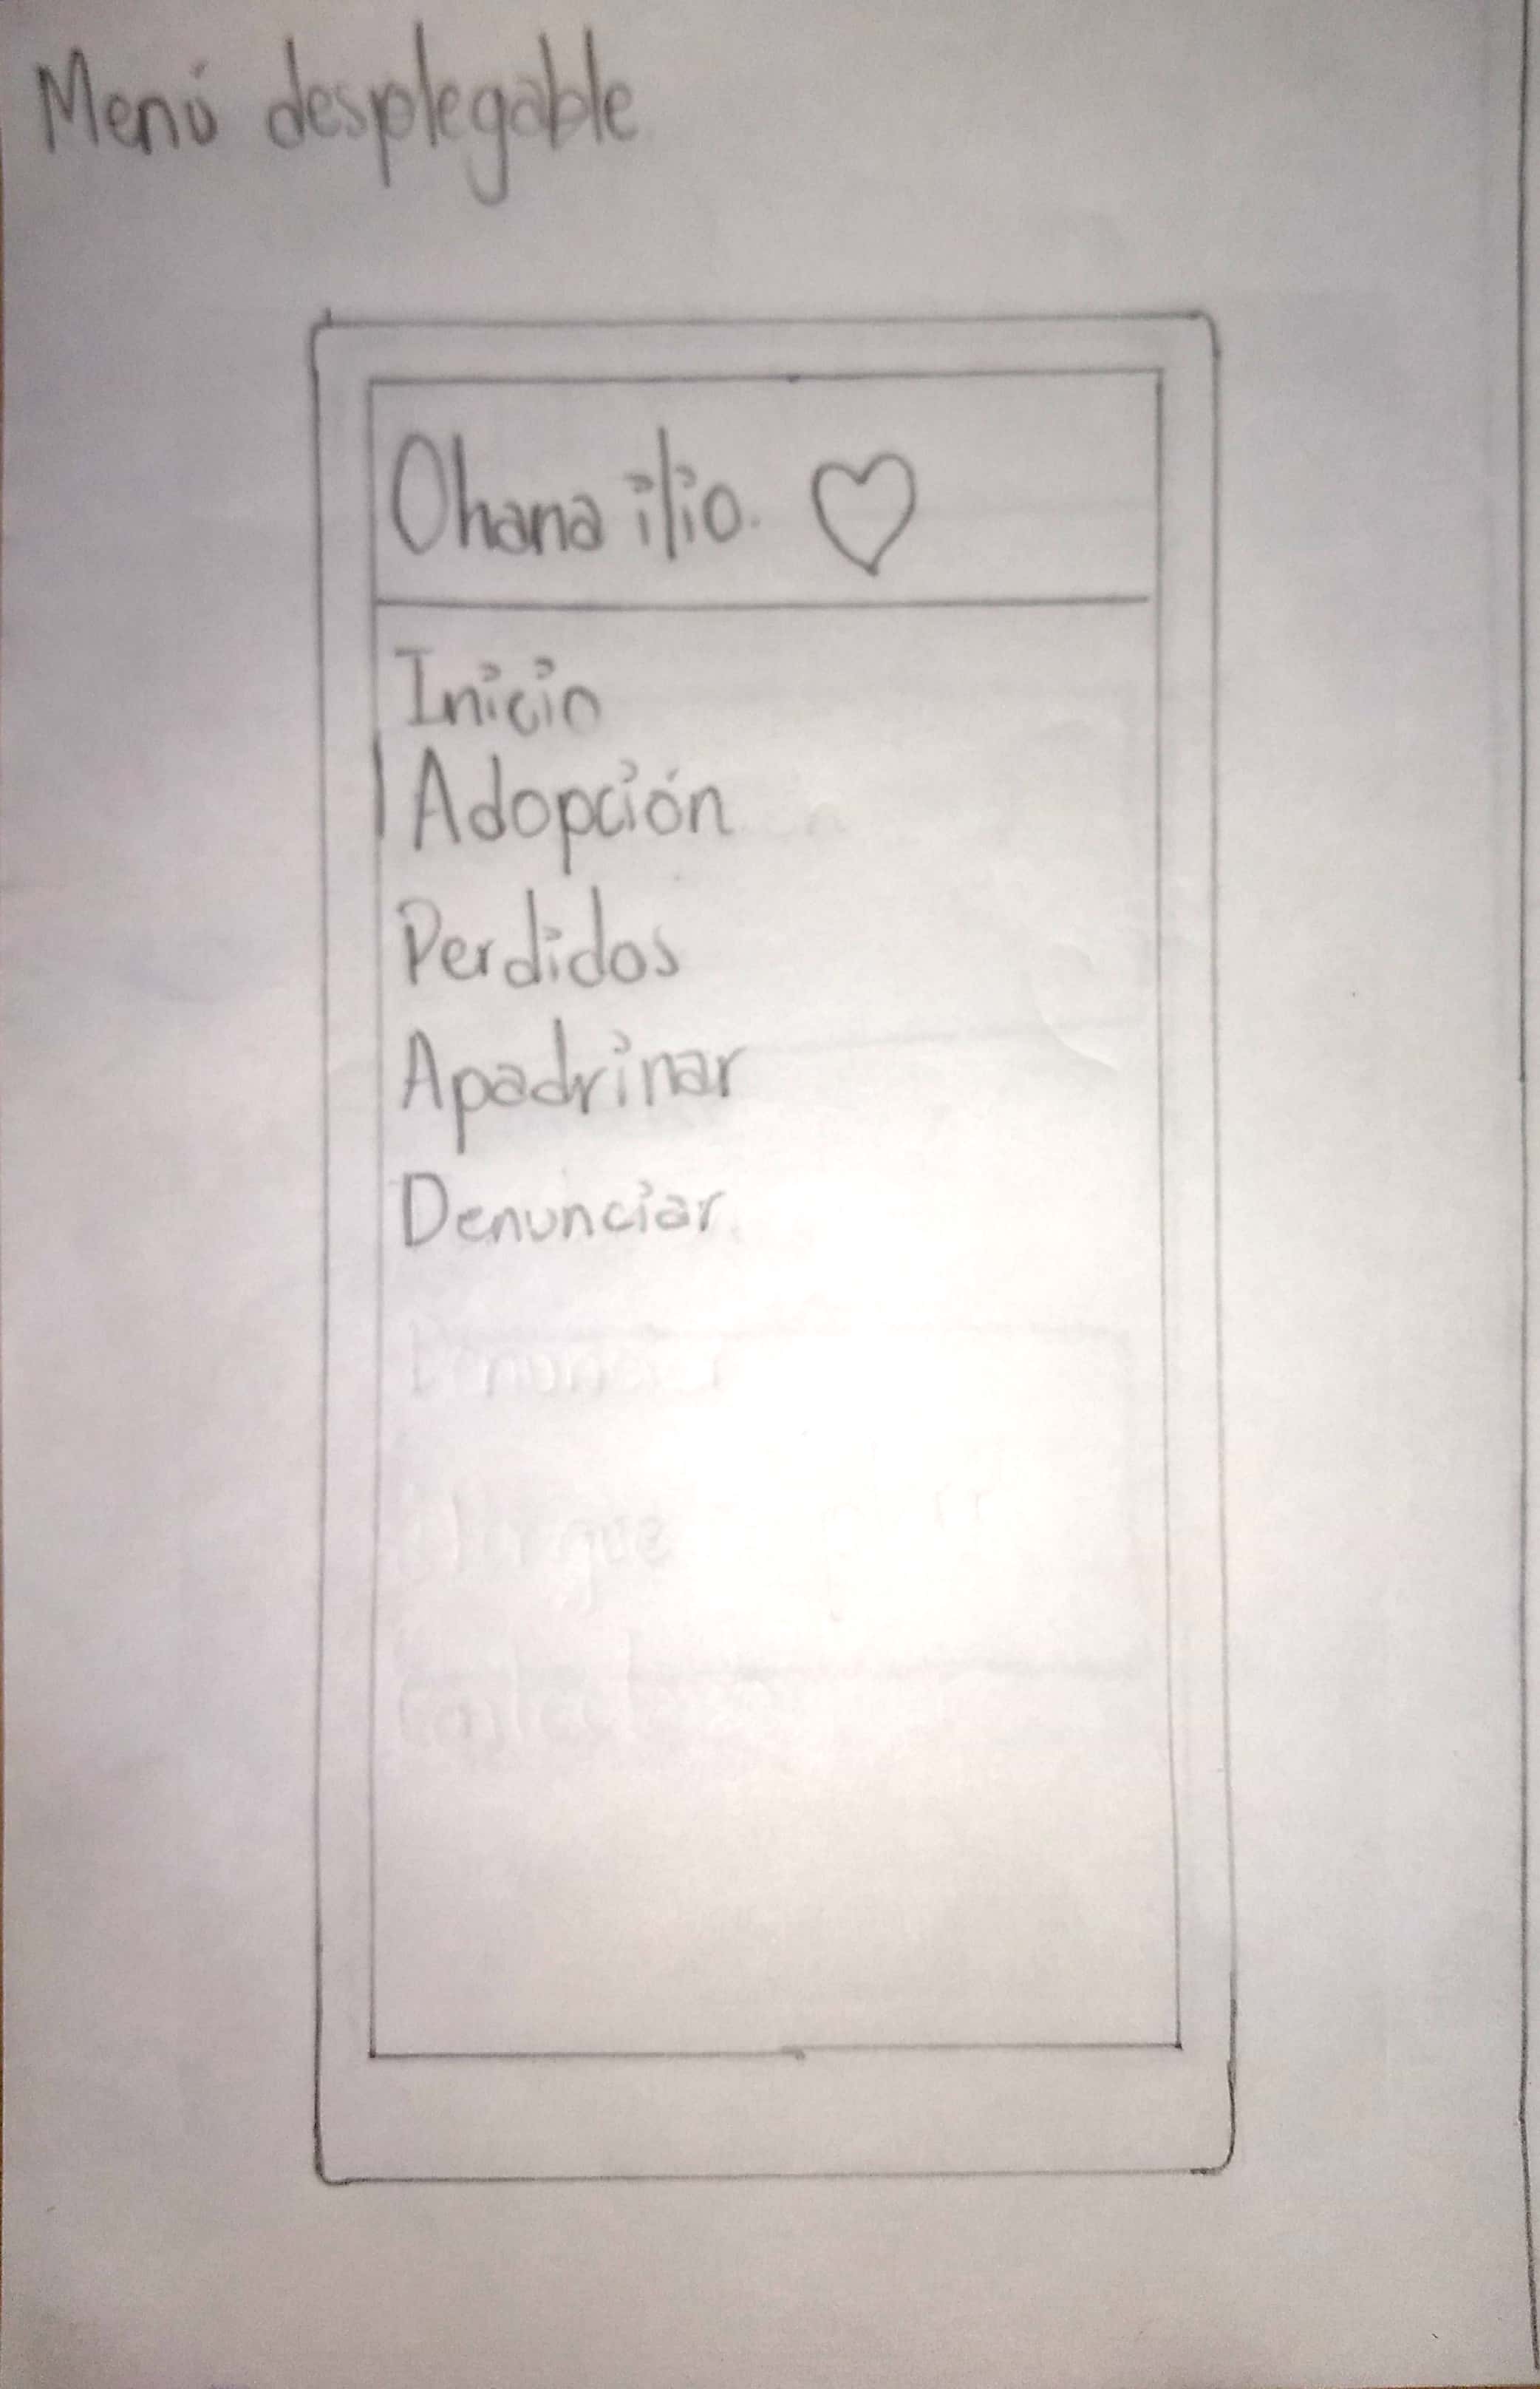 Menú desplegable
Ohana ilio. ♡
Inicio
Adopción
Perdidos
Apadrinar
Denunciar